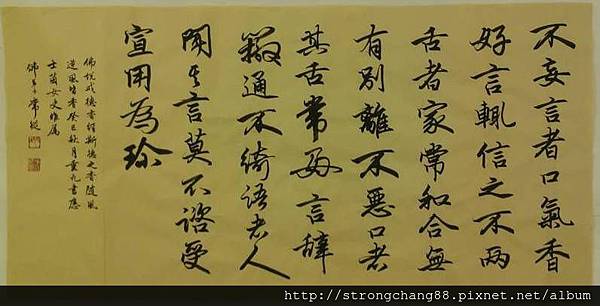 不妄言者口氣香
好言輒信之不兩
舌者家常和合無
有別離不惡口者
其舌常好言辭
辯通不綺語者人
聞其言莫不諮受
宣用為珍
佛說戒德香經斯德之香隨風
逆風皆香癸巳秋月重九書應
士蘭女史雅屬
佛弟子常
http://strongchang88.pixnet.net/album